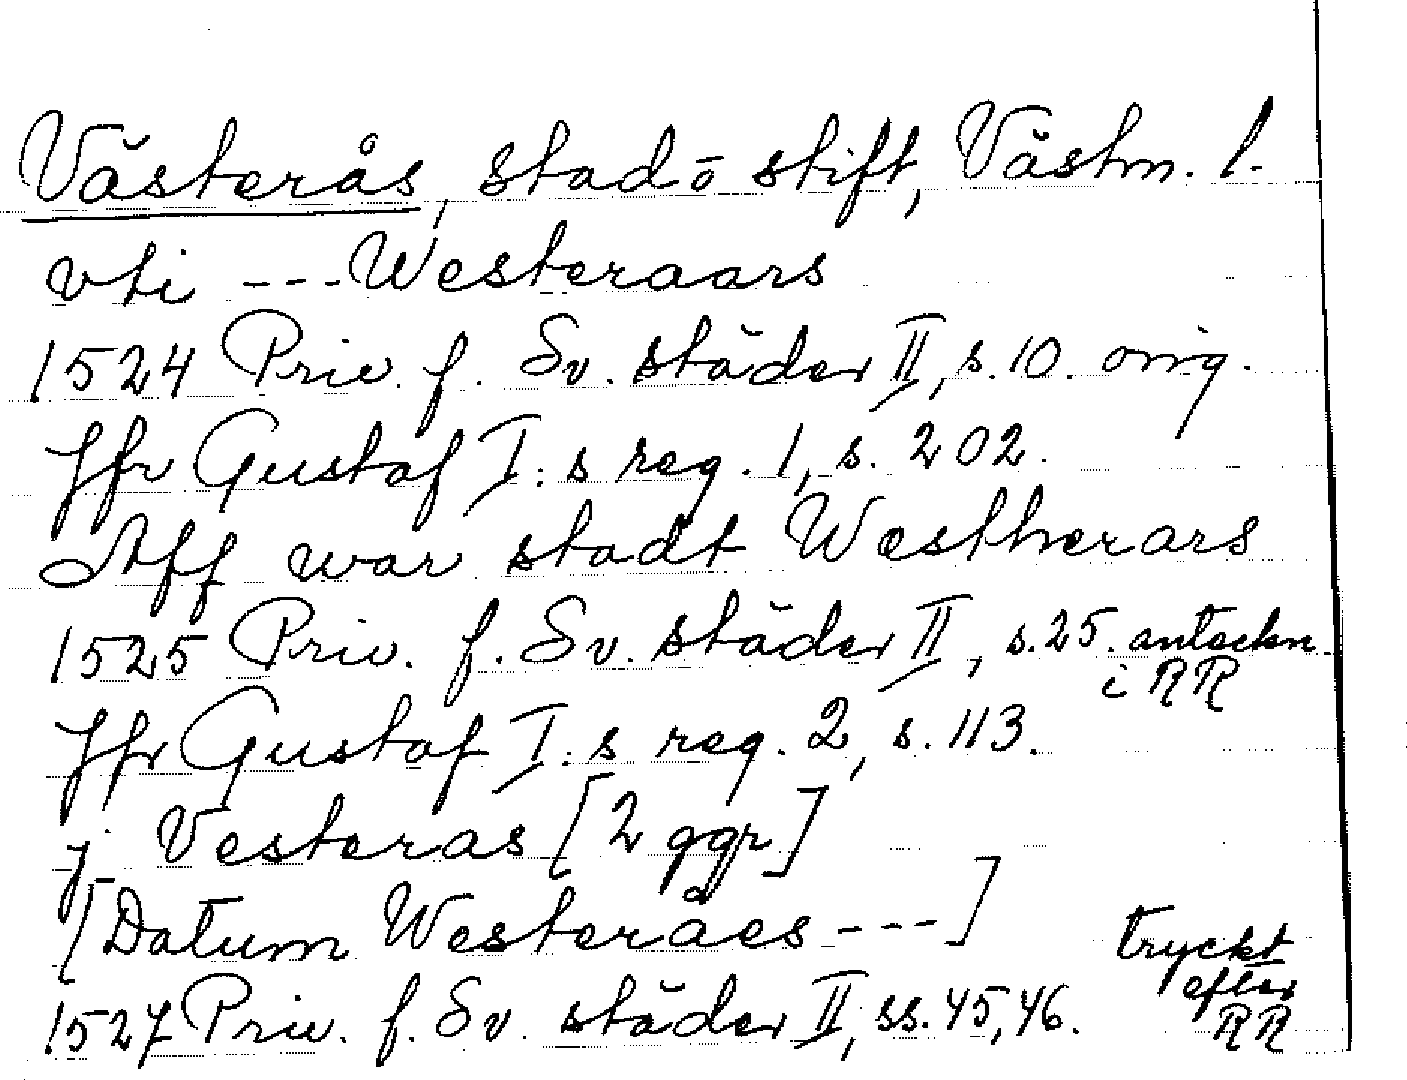 Västerås, stad o stift, Västm. l.
vti --- Westeraars
1524 Priv. f. Sv. städer II, s. 10. orig.
Jfr Gustaf I:s reg. 1, s. 202.
Aff war stadt Westherars
1525 Priv. f. Sv. städer II, s. 25. anteckn.
i RR
Jfr Gustaf I:s reg. 2, s. 113.
j Vesteras [2 ggr]
[Datum Westeråes ---]
1527 Priv. f. Sv. städer II, ss. 45, 46.
tryckt
efter
RR